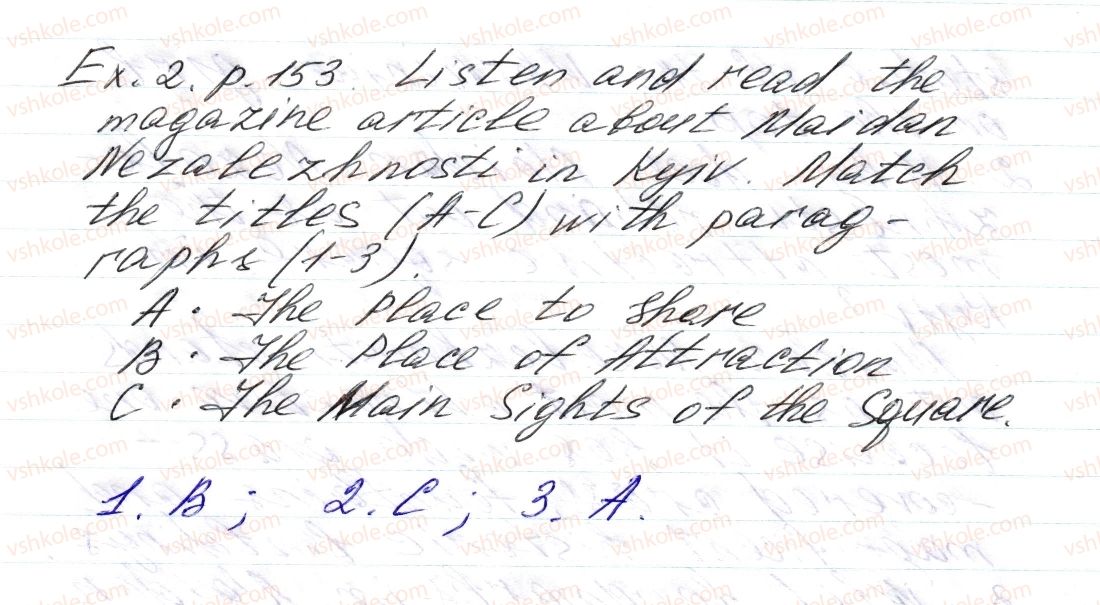 Ex. 2. p. 153. Listen and read the
magazine article about Maidan
Nezalezhnosti in Kyiv. Match
the titles (A-C) with parag-
raphs (1-3).
A. The Place to Share
B. The Place of Attraction
C. The Main Sights of the Square.
1. B; 2. C; 3. A.